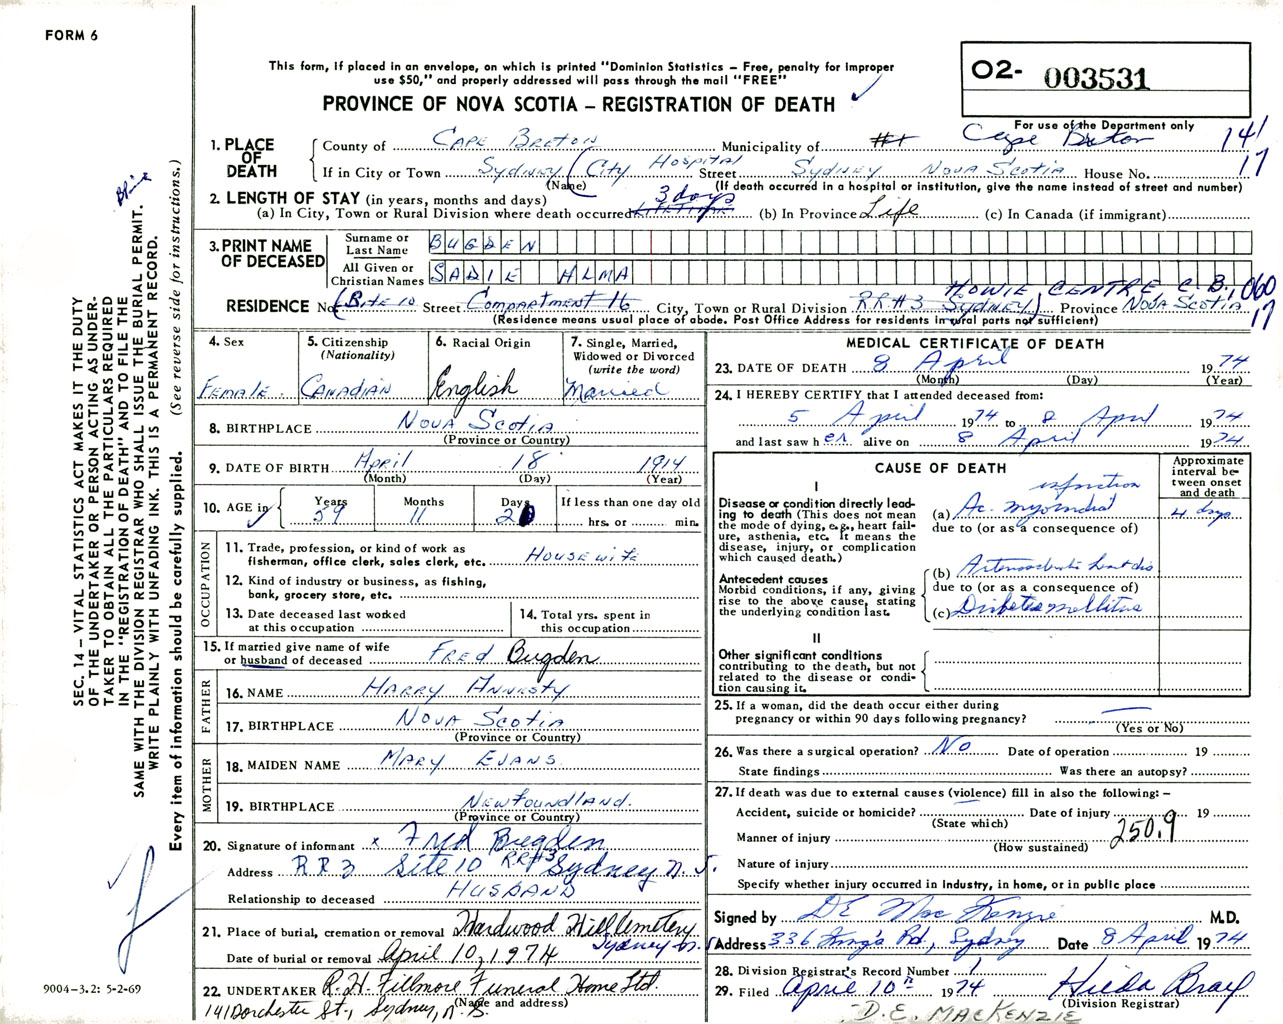 FORM 6
This form, if placed in an envelope, on which is printed "Dominion Statistics – Free, penalty for improper
use $50," and properly addressed will pass through the mail "FREE"
PROVINCE OF NOVA SCOTIA – REGISTRATION OF DEATH
02- 003531
For use of the Department only
1. PLACE OF DEATH
County of CAPE BRETON Municipality of Cape Breton 141
If in City or Town Sydney (City Hospital Street Sydney Nova Scotia House No. 17
(Name) (If death occurred in a hospital or institution, give the name instead of street and number)
2. LENGTH OF STAY (in years, months and days)
(a) In City, Town or Rural Division where death occurred 3 days (b) In Province Life (c) In Canada (if immigrant)
3. PRINT NAME OF DECEASED
Surname or Last Name BUGDEN
All Given or Christian Names SADIE ALMA
RESIDENCE No (Site 10 Street Compartment 16 City, Town or Rural Division RR#3 Sydney) HOWIE CENTRE C.B., Province NOVA SCOTIA 060 17
(Residence means usual place of abode. Post Office Address for residents in rural parts not sufficient)
4. Sex Female
5. Citizenship (Nationality) Canadian
6. Racial Origin English
7. Single, Married, Widowed or Divorced (write the word) Married
8. BIRTHPLACE Nova Scotia
(Province or Country)
9. DATE OF BIRTH April 18 1914
(Month) (Day) (Year)
10. AGE in Years 59 Months 11 Days 20 If less than one day old
hrs. or min.
OCCUPATION
11. Trade, profession, or kind of work as
fisherman, office clerk, sales clerk, etc. HOUSEWIFE
12. Kind of industry or business, as fishing,
bank, grocery store, etc.
13. Date deceased last worked
at this occupation
14. Total yrs. spent in
this occupation
15. If married give name of wife
or husband of deceased FRED Bugden
FATHER
16. NAME HARRY ANNESTY
17. BIRTHPLACE NOVA SCOTIA
(Province or Country)
MOTHER
18. MAIDEN NAME MARY EVANS
19. BIRTHPLACE NEWFOUNDLAND.
(Province or Country)
20. Signature of informant x Fred Bugden
Address RR3 Site 10 RR#3 Sydney N.S.
Relationship to deceased HUSBAND
21. Place of burial, cremation or removal Hardwood Hill Cemetery
Sydney N.S
Date of burial or removal April 10, 1974
22. UNDERTAKER R. H. Fillmore Funeral Home Ltd.
(Name and address)
141 Dorchester St., Sydney, N.S.
MEDICAL CERTIFICATE OF DEATH
23. DATE OF DEATH 8 April 1974
(Month) (Day) (Year)
24. I HEREBY CERTIFY that I attended deceased from:
5 April 1974 to 8 April 1974
and last saw her alive on 8 April 1974
CAUSE OF DEATH
Approximate interval between onset and death
I
Disease or condition directly lead-
ing to death (This does not mean
the mode of dying, e.g., heart fail-
ure, asthenia, etc. It means the
disease, injury, or complication
which caused death.)
(a) Ac. myocardial infarction 4 days
due to (or as a consequence of)
Antecedent causes
Morbid conditions, if any, giving
rise to the above cause, stating
the underlying condition last.
(b) Arteriosclerotic heart dis
due to (or as a consequence of)
(c) Diabetes mellitus
II
Other significant conditions
contributing to the death, but not
related to the disease or condi-
tion causing it.
25. If a woman, did the death occur either during
pregnancy or within 90 days following pregnancy? —
(Yes or No)
26. Was there a surgical operation? No Date of operation 19
State findings Was there an autopsy?
27. If death was due to external causes (violence) fill in also the following: –
Accident, suicide or homicide? Date of injury 19
(State which)
Manner of injury 250.9
(How sustained)
Nature of injury
Specify whether injury occurred in industry, in home, or in public place
Signed by DE MacKenzie M.D.
Address 336 King's Rd, Sydney Date 8 April 1974
28. Division Registrar's Record Number 1
29. Filed April 10th 1974 Hilda Bray
(Division Registrar)
D.E. MACKENZIE
SEC. 14 – VITAL STATISTICS ACT MAKES IT THE DUTY
OF THE UNDERTAKER OR PERSON ACTING AS UNDER-
TAKER TO OBTAIN ALL THE PARTICULARS REQUIRED
IN THE "REGISTRATION OF DEATH" AND TO FILE THE
SAME WITH THE DIVISION REGISTRAR WHO SHALL ISSUE THE BURIAL PERMIT.
WRITE PLAINLY WITH UNFADING INK. THIS IS A PERMANENT RECORD.
Every item of information should be carefully supplied. (See reverse side for instructions.)
9004–3.2: 5-2-69